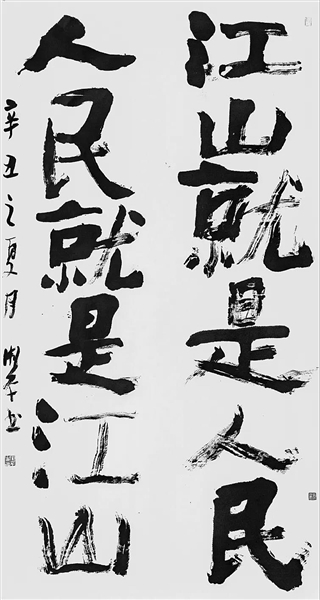 江山就是人民
人民就是江山
辛丑之夏月
书